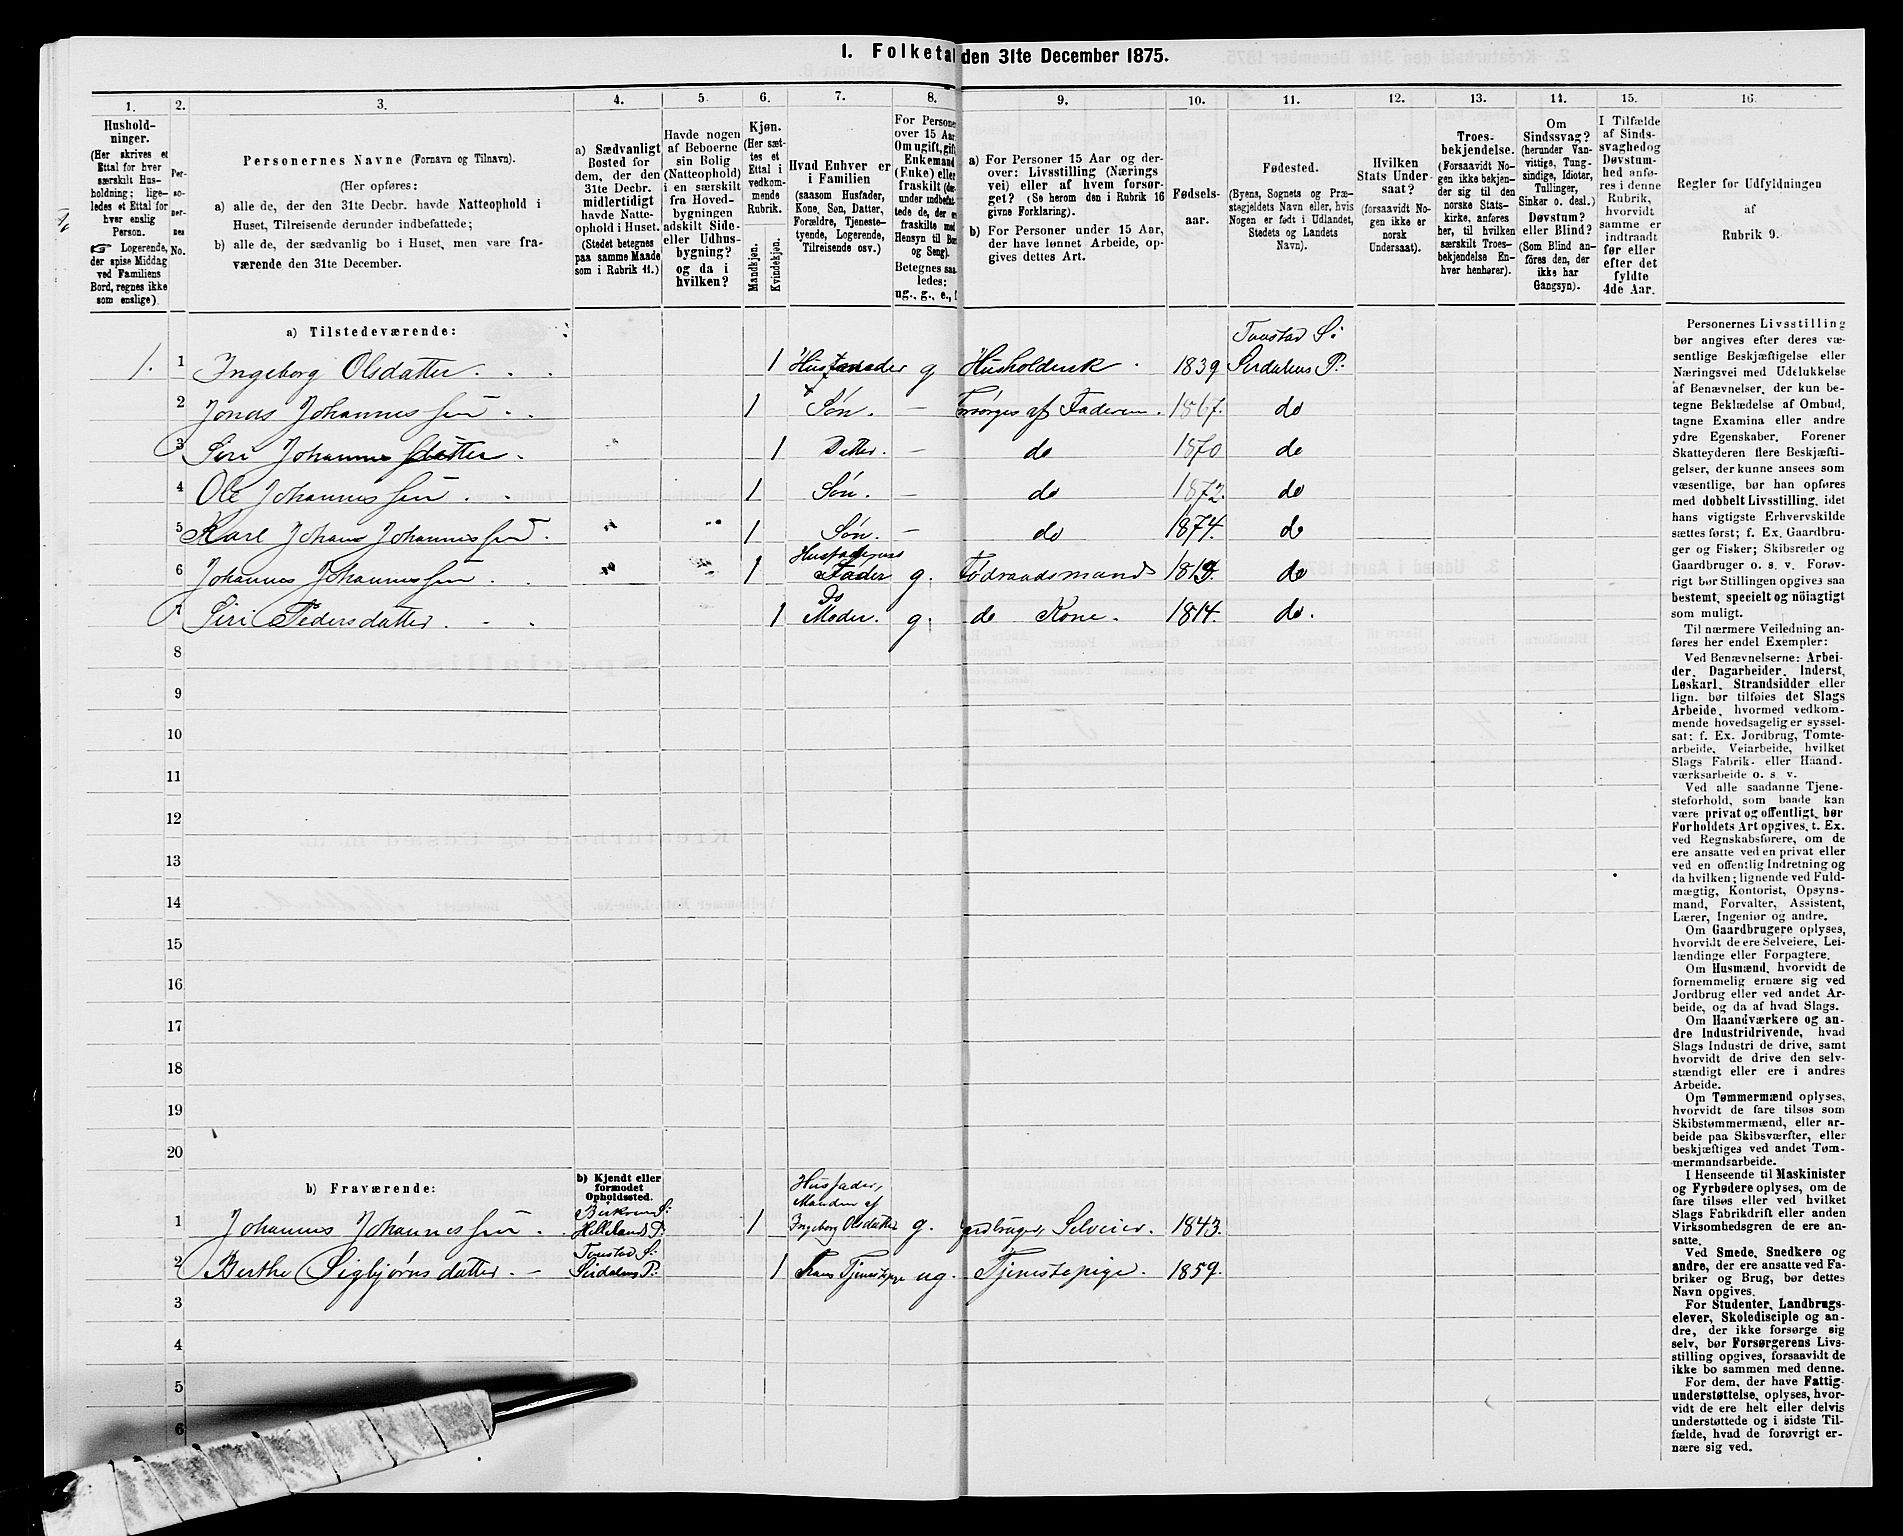 1. Folketal den 31te December 1875.
1. 2. 3. 4. 5. 6. 7. 8. 9. 10. 11. 12. 13. 14. 15. 16.
Hushold-
ninger.
(Her skrives et
Ettal for hver
særskilt Hus-
holdning; lige-
ledes et Ettal for
hver enslig
Person.
Logerende,
der spise Middag
ved Familiens
Bord, regnes ikke
som enslige).
Per-
so-
ner-
nes
No.
Personernes Navne (Fornavn og Tilnavn).
(Her opføres:
a) alle de, der den 31te Decbr. havde Natteophold i
Huset, Tilreisende derunder indbefattede;
b) alle de, der sædvanlig bo i Huset, men vare fra-
værende den 31te December.
a) Sædvanligt
Bosted for
dem, der den
31te Decbr.
midlertidigt
havde Natte-
ophold i Huset.
(Stedet betegnes
paa samme Maade
som i Rubrik 11.)
Havde nogen
af Beboerne
sin Bolig
(Natteophold)
i en særskilt
fra Hoved-
bygningen
adskilt Side-
eller Udhus-
bygning?
og da i
hvilken?
Kjøn.
(Her sæt-
tes et
Ettal i
vedkom-
mende
Rubrik.
Mandkjøn.
Kvindekjøn.
Hvad Enhver er
i Familien
(saasom Husfader,
Kone, Søn, Datter,
Forældre, Tjeneste-
tyende, Logerende,
Tilreisende osv.)
For Persone
over 15 Aar
Om ugift, gift
Enkemand
(Enke) eller
fraskilt (der-
under indbefat-
tede de, der er
fraskilte med
Hensyn til Bo
og Seng).
Betegnes saa-
ledes:
ug., g., e., f
a) For Personer 15 Aar og der-
over: Livsstilling (Nærings
vei) eller af hvem forsør-
get? (Se herom den i Rubrik 16
givne Forklaring).
b) For Personer under 15 Aar,
der have lønnet Arbeide, op-
gives dettes Art.
Fødsels-
aar.
Fødested.
(Byens, Sognets og Præ-
stegjeldets Navn eller, hvis
Nogen er født i Udlandet,
Stedets og Landets
Navn).
Hvilken
Stats Under-
saat?
(forsaavidt No-
gen ikke er
norsk
Undersaat).
Troes-
bekjendelse.
(Forsaavidt No-
gen ikke bekjen-
der sig til den
norske Stats-
kirke, anføres
her, til hvilken
særskilt Troes-
bekjendelse En-
hver henhører).
Om
Sindssvag?
(herunder Van-
vittige, Tung-
sindige, Idioter,
Tullinger,
Sinker o. desl.)
Døvstum?
eller Blind?
(Som Blind an-
føres den, der
ikke har
Gangsyn).
I Tilfælde
af Sinds-
svaghed og
Døvstum-
hed anfø-
res i denne
Rubrik,
hvorvidt
samme er
indtraadt
før eller
efter det
fyldte
4de Aar.
Regler for Udfyldningen
af
Rubrik 9.
a) Tilstedeværende:
Tonstad S:
1. 1 Ingeborg Olsdatter . . . 1 g Husholdersk . 1839 Sirdalens P:
2 Jonas Johannessen . . 1 Søn. — Forsørges af Faderen. 1867. do
3 Siri Johannesdatter . 1 Datter. — do 1870 do
4 Ole Johannessen . . 1 Søn. — do 1872. do
5 Karl Johan Johannessen . 1 Søn. — do 1874. do
Husfaderens
6 Johannes Johannessen . . 1 Fader g. Føderaadsmand do
Do
7 Siri Pedersdatter . . . 1 Moder. g. do Kone. 1814. do.
8
9
10
11
12
13
14
15
16
17
18
19
20
b) Fraværende:
b) Kjendt eller
formodet
Opholdssted.
Husfader,
Manden af
Birkrem S:
1 Johannes Johannessen . Hellelands P: 1 Ingeborg Olsdatter g. Selveier. 1843.
Tonstad S:
2 Berthe Sigbjørnsdatter . — Sirdalens P: 1 Tjenestepige ug. Tjenestepige. 1859.
3
4
5
6
Personernes Livsstilling
bør angives efter deres væ-
sentlige Beskjæftigelse eller
Næringsvei med Udelukkelse
af Benævnelser, der kun be-
tegne Beklædelse af Ombud,
tagne Examina eller andre
ydre Egenskaber. Forener
Skatteyderen flere Beskjæfti-
gelser, der kunne ansees som
væsentlige, bør han opføres
med dobbelt Livsstilling, idet
hans vigtigste Erhvervskilde
sættes først; f. Ex. Gaardbru-
ger og Fisker; Skibsreder og
Gaardbruger o. s. v. Forøv-
rigt bør Stillingen opgives saa
bestemt, specielt og nöiagtigt
som muligt.
Til nærmere Veiledning an-
føres her endel Exempler:
Ved Benævnelserne: Arbei-
der, Dagarbeider, Inderst,
Løskarl, Strandsidder eller
lign. bør tilføies det Slags
Arbeide, hvormed vedkom-
mende hovedsagelig er syssel-
sat; f. Ex. Jordbrug, Tomte-
arbeide, Veiarbeide, hvilket
Slags Fabrik- eller Haand-
værksarbeide o. s. v.
Ved alle saadanne Tjene-
steforhold, som baade kan
være privat og offentligt, bør
Forholdets Art opgives, t. Ex.
ved Regnskabsførere, om de
ere ansatte ved en privat eller
ved en offentlig Indretning og
da hvilken; lignende ved Fuld-
mægtig, Kontorist, Opsyns-
mand, Forvalter, Assistent,
Lærer, Ingeniør og andre.
Om Gaardbrugere oplyses,
hvorvidt de ere Selveiere, Lei-
lændinge eller Forpagtere.
Om Husmænd, hvorvidt de
fornemmelig ernære sig ved
Jordbrug eller ved andet Ar-
beide, og da af hvad Slags.
Om Haandværkere og an-
dre Industridrivende, hvad
Slags Industri de drive, samt
hvorvidt de drive den selv-
stændigt eller ere i andres
Arbeide.
Om Tømmermænd oplyses,
hvorvidt de fare tilsøs som
Skibstømmermænd, eller ar-
beide paa Skibsværfter, eller
beskjæftiges ved andet Tøm-
mermandsarbeide.
I Henseende til Maskinister
og Fyrbødere oplyses, om de
fare tilsøs eller ved hvilket
Slags Fabrikdrift eller anden
Virksomhedsgren de ere an-
satte.
Ved Smede, Snedkere og
andre, der ere ansatte ved Fa-
briker og Brug, bør dettes
Navn opgives.
For Studenter, Landbrugs-
elever, Skoledisciple og an-
dre, der ikke forsørge sig
selv, bør Forsørgerens Livs-
stilling opgives, forsaavidt de
ikke bo sammen med denne.
For dem, der have Fattig-
understøttelse, oplyses, hvor-
vidt de ere helt eller delvis
understøttede og i sidste Til-
fælde, hvad de forøvrigt er-
nære sig ved.